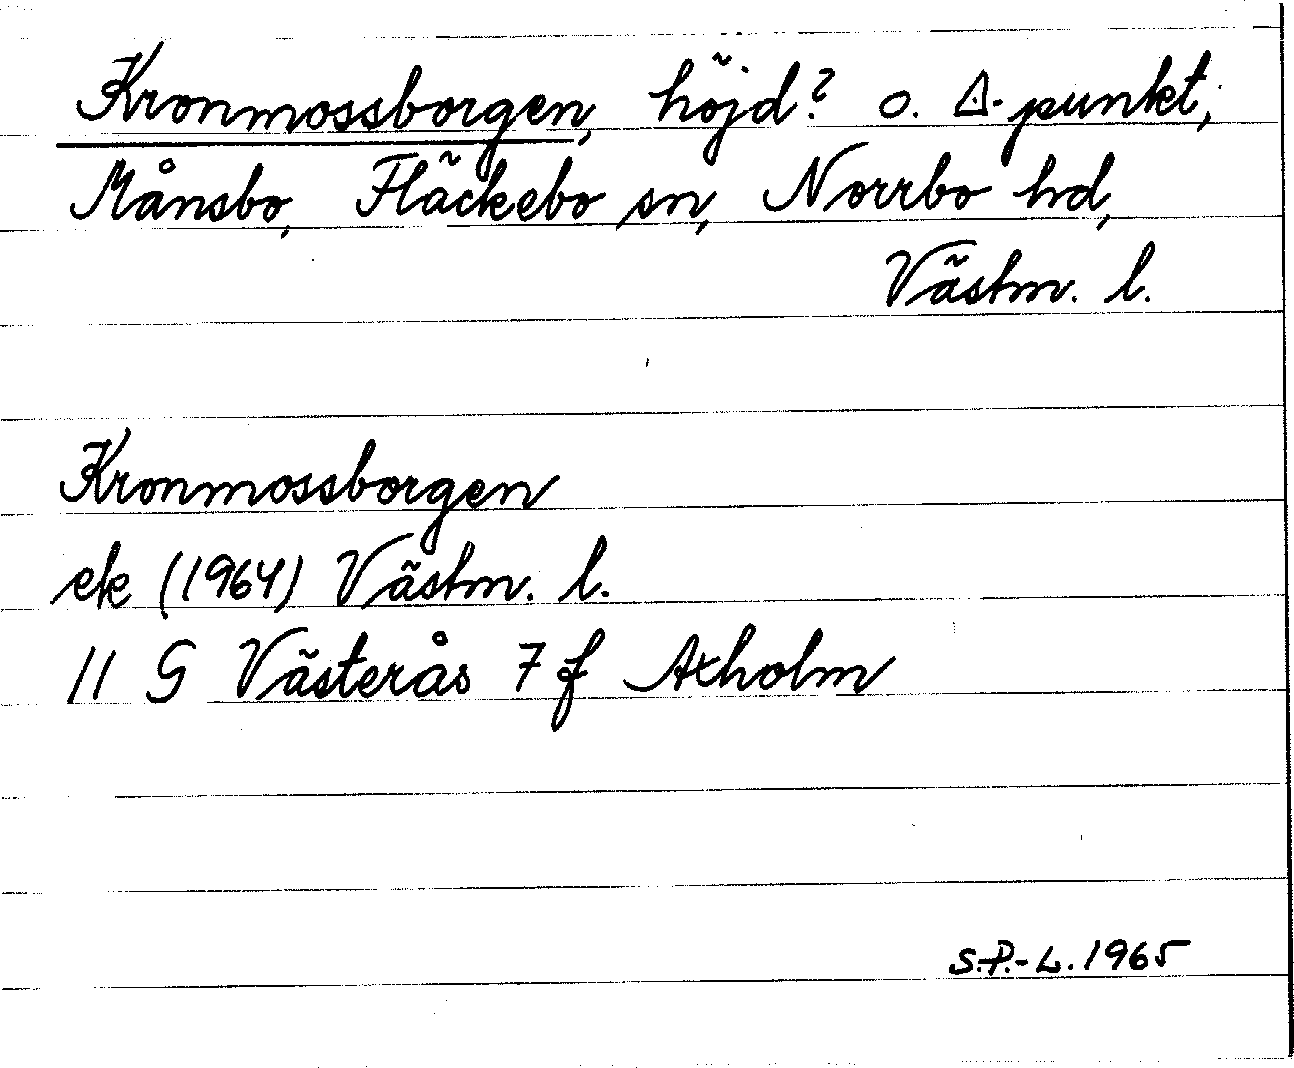 Kronmossborgen, höjd? o. △-punkt;
Månsbo, Fläckebo sn, Norrbo hd,
Västm. l.
Kronmossborgen
ek (1964) Västm. l.
11 G Västerås 7 f Axholm
S.P.-L. 1965